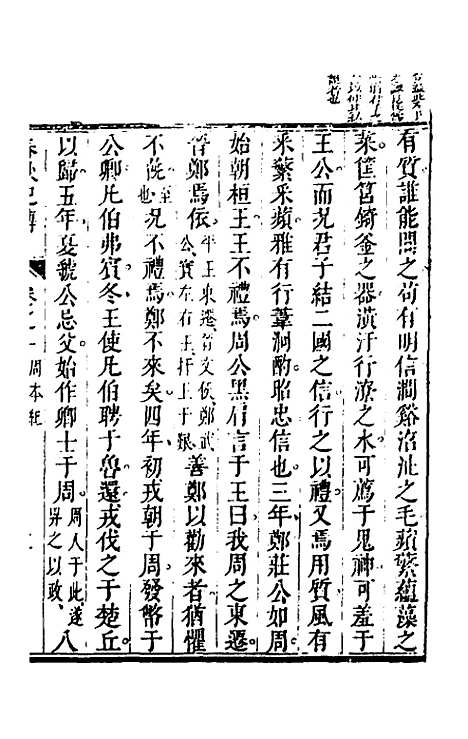 有質誰能間之苟有明信澗谿沼沚之毛蘋蘩薀藻之
菜筐筥錡釜之器潢汙行潦之水可薦于鬼神可羞于
王公而况君子結二國之信行之以禮又焉用質風有
采蘩采蘋雅有行葦泂酌昭忠信也三年鄭莊公如周
始朝桓王王不禮焉周公黑肩言于王曰我周之東遷
晉鄭焉依平王東遷晉文侯鄭武公寳左右王抍王于艱善鄭以勸來者猶懼
不旣至也况不禮焉鄭不來矣四年初戎朝于周發幣于
公卿凡伯弗賓冬王使凡伯聘于魯還戎伐之于楚丘
以歸五年夏虢公忌父始作卿士于周周人于此遂畀之以政八
春秋巳傳 卷之一 周本紀